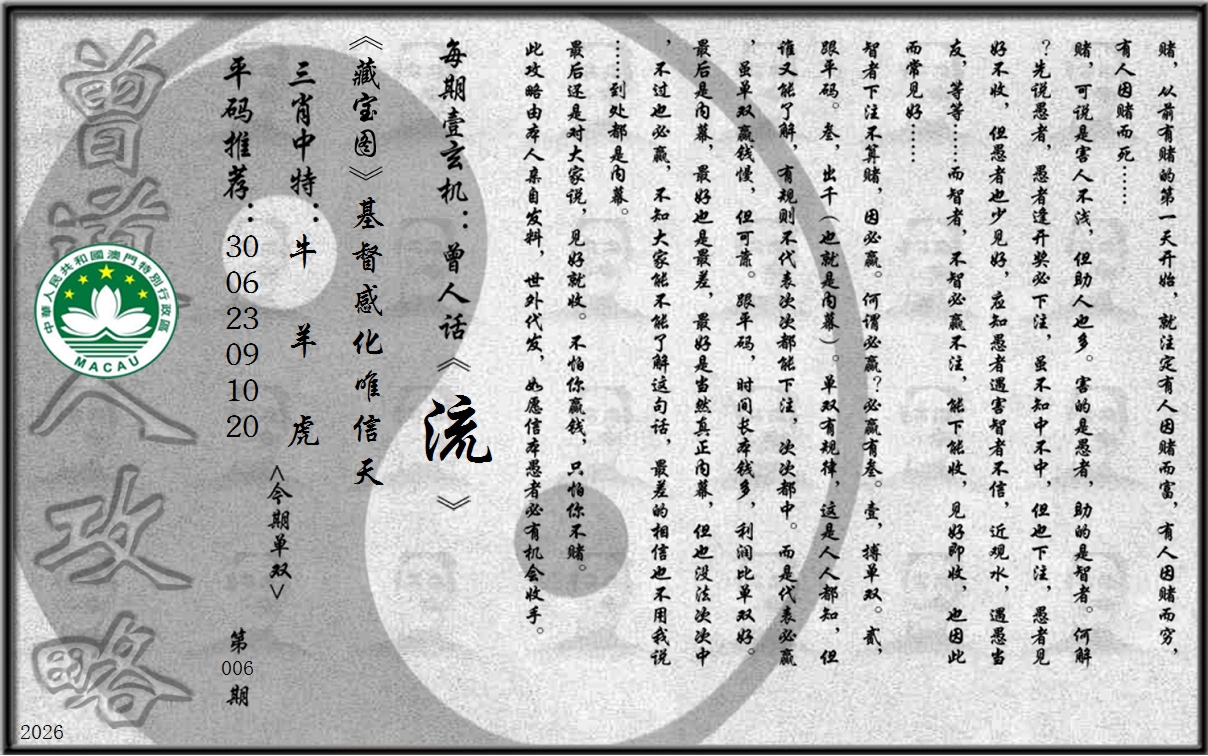 赌，从前有赌的第一天开始，就注定有人因赌而富，有人因赌而穷，
有人因赌而死……
赌，可说是害人不浅，但助人也多。害的是愚者，助的是智者。何解
？先说愚者，愚者逢开奖必下注，虽不知中不中，但也下注，愚者见
好不收，但愚者也少见好，应知愚者遇害智者不信，近观水，遇愚当
友，等等……而智者，不智必赢不注，能下能收，见好即收，也因此
而常见好……
智者下注不算赌，因必赢。何谓必赢？必赢有叁。壹，搏单双。贰，
跟平码。叁，出千（也就是内幕）。单双有规律，这是人人都知，但
谁又能了解，有规则不代表次次都能下注，次次都中。而是代表必赢
，虽单双赢钱慢，但可靠。跟平码，时间长本钱多，利润比单双好。
最后是内幕，最好也是最差，最好是当然真正内幕，但也没法次次中
，不过也必赢，不知大家能不能了解这句话，最差的相信也不用我说
……到处都是内幕。
最后还是对大家说，见好就收。不怕你赢钱，只怕你不赌。
此攻略由本人亲自发料，世外代发，如愿信本愚者必有机会收手。
每期壹玄机：曾人话《流》
《藏宝图》基督感化唯信天
三肖中特：牛 羊 虎
<今期单双>
平码推荐：30 06 23 09 10 20
第006期
曾道人攻略
中華人民共和國澳門特別行政區
MACAU
2026